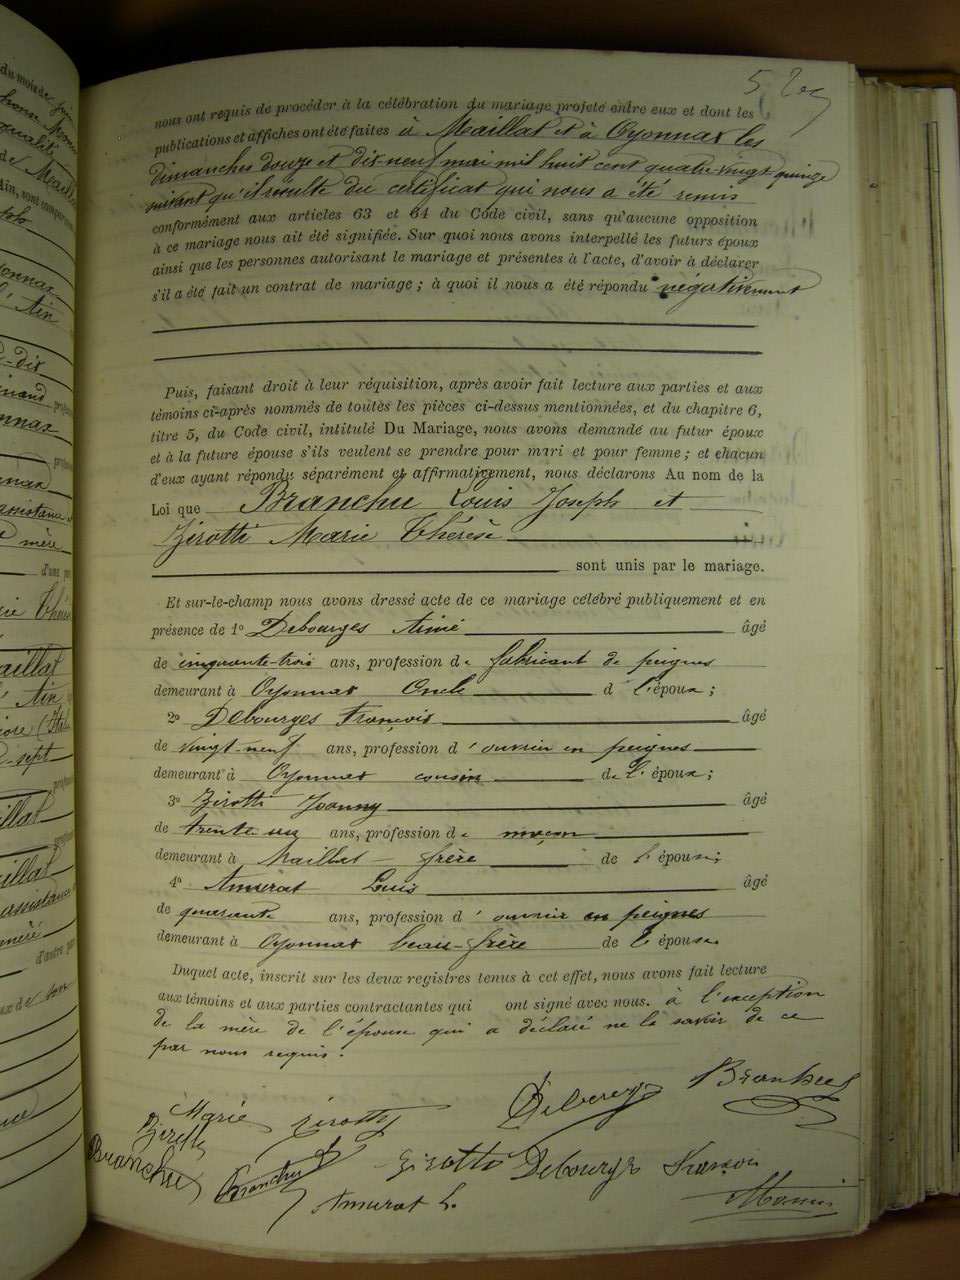 5
nous ont requis de procéder à la célébration du mariage projeté entre eux et dont les
publications et affiches ont été faites à Maillat et à Oyonnax les
dimanches douze et dix-neuf mai mil huit cent quatre-vingt-quinze
suivant qu'il résulte du certificat qui nous a été remis
conformément aux articles 63 et 64 du Code civil, sans qu'aucune opposition
à ce mariage nous ait été signifiée. Sur quoi nous avons interpellé les futurs époux
ainsi que les personnes autorisant le mariage et présentes à l'acte, d'avoir à déclarer
s'il a été fait un contrat de mariage ; à quoi il nous a été répondu négativement
Puis, faisant droit à leur réquisition, après avoir fait lecture aux parties et aux
témoins ci-après nommés de toutes les pièces ci-dessus mentionnées, et du chapitre 6,
titre 5, du Code civil, intitulé Du Mariage, nous avons demandé au futur époux
et à la future épouse s'ils veulent se prendre pour mari et pour femme ; et chacun
d'eux ayant répondu séparément et affirmativement, nous déclarons Au nom de la
Loi que Branchu Louis Joseph et
Zirotti Marie Thérèse
sont unis par le mariage.
Et sur-le-champ nous avons dressé acte de ce mariage célébré publiquement et en
présence de 1º Debourges Aimé âgé
de cinquante-trois ans, profession de fabricant de peignes
demeurant à Oyonnax Oncle d l'époux ;
2º Debourges François âgé
de vingt-neuf ans, profession d'ouvrier en peignes
demeurant à Oyonnax cousin de l'époux ;
3º Zirotti Joanny âgé
de trente un ans, profession de maçon
demeurant à Maillat frère de l'épouse
4º Amurat Louis âgé
de quarante ans, profession d'ouvrier en peignes
demeurant à Oyonnax beau-frère de l'épouse
Duquel acte, inscrit sur les deux registres tenus à cet effet, nous avons fait lecture
aux témoins et aux parties contractantes qui ont signé avec nous. à l'exception
de la mère de l'épouse qui a déclaré ne le savoir de ce
par nous requis.
Branchu
Marie Zirotti
Zirotti
Debourge
Branchu
Branchu
Zirotti
Debourge
Amurat L.